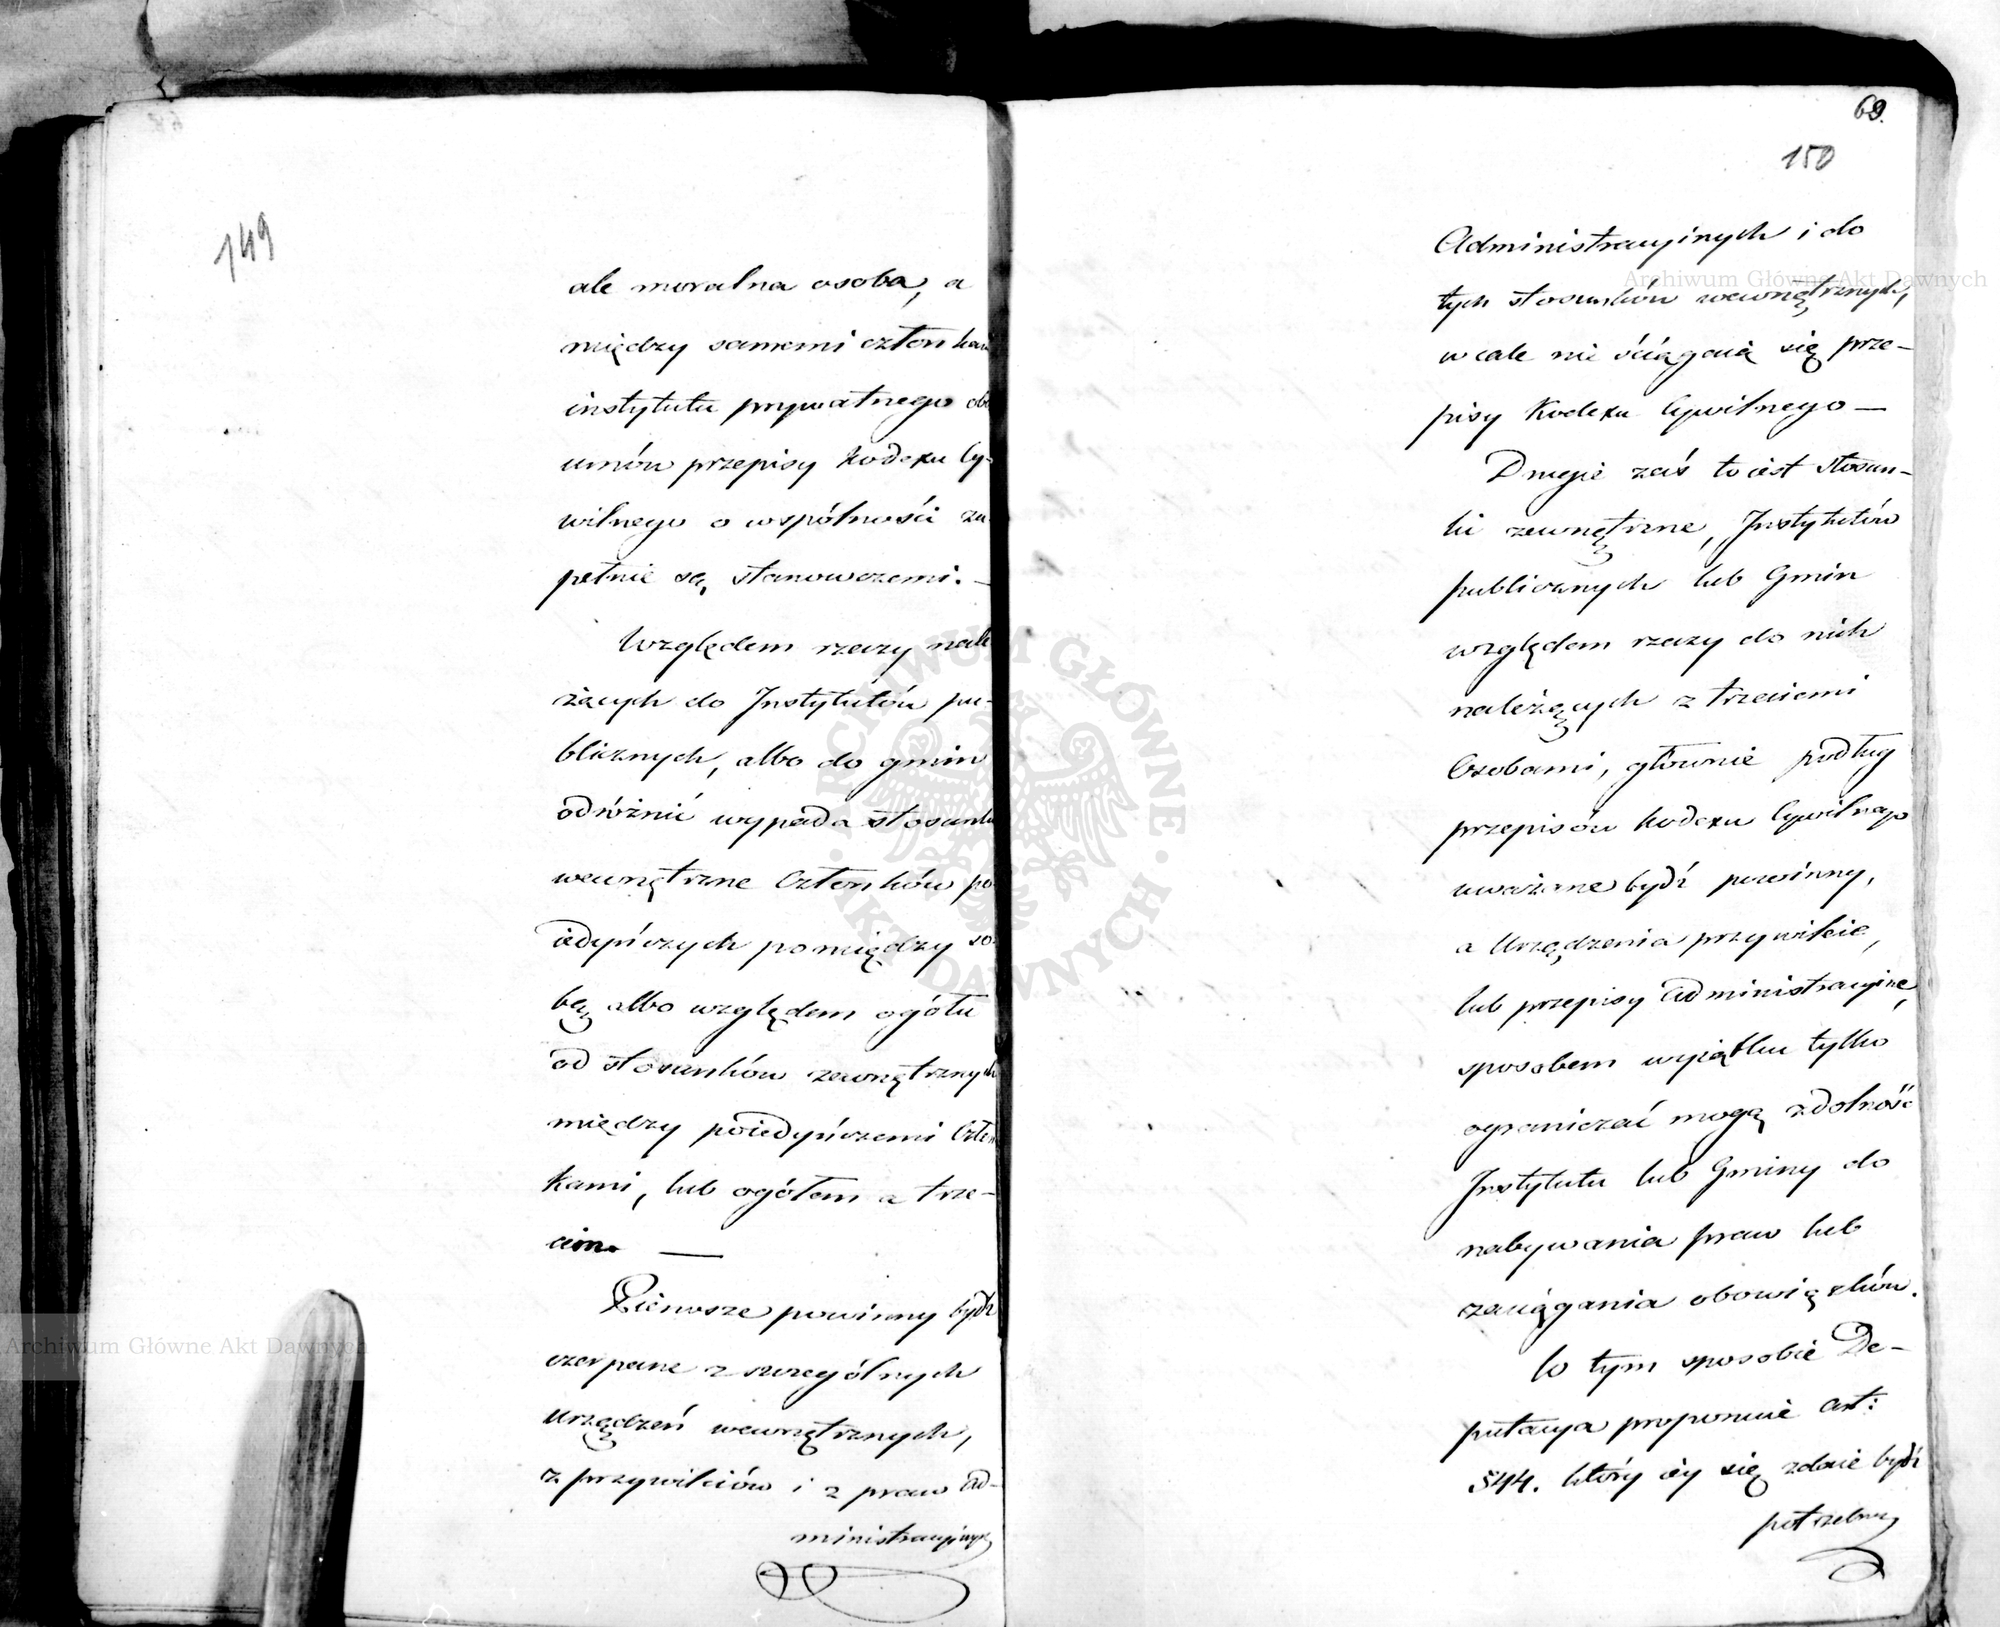 149
ale moralna osoba, a
między samemi członkami
instytutu prywatnego obo
umów przepisy Kodexu Cy-
wilnego o wspólności zu-
pełnie są stanowczemi. —
Względem rzeczy nale
żących do Instytutów pu-
blicznych, albo do gmin
odróżnić wypada stosunki
wewnętrzne Członków po
iedyńczych pomiędzy so-
bą albo względem ogółu
od stosunków zewnętrznych
między poiedyńczemi Człon
kami, lub ogółem a trze-
cim. —
Pierwsze powinny bydź
czerpane z szczególnych
urządzeń wewnętrznych,
z przywileiów i z praw Ad-
ministracyinych
69.
150
Administracyinych i do
tych stosunków wewnętrznych,
wcale nie ściągaią się prze-
pisy Kodexu Cywilnego —
Drugie zaś to iest stosun-
ki zewnętrzne, Instytutów
publicznych lub Gmin
względem rzeczy do nich
należących z trzeciemi
Osobami, głównie podług
przepisów Kodexu Cywilnego
uważane bydź powinny,
a Urządzenia przywileie,
lub przepisy Administracyine,
sposobem wyiątku tylko
ograniczać mogą zdolność
Instytutu lub Gminy do
nabywania praw lub
zaciągania obowiązków.
W tym sposobie De-
putacya proponuie art:
544. który iey się zdaie bydź
potrzebny
Archiwum Główne Akt Dawnych
Archiwum Główne Akt Dawnych
ARCHIWUM GŁÓWNE · AKT DAWNYCH ·